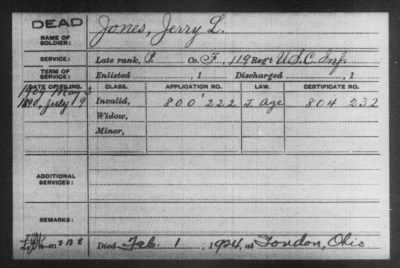 DEAD
NAME OF SOLDIER: Jones, Jerry L.
SERVICE: Late rank, P. Co. F, 119 Reg't U.S.C. Inf.
TERM OF SERVICE: Enlisted , 1 Discharged , 1
DATE OF FILING. CLASS. APPLICATION NO. LAW. CERTIFICATE NO.
1907 May 3
1890, July 19 Invalid, 800 222 J. Age 804 232
Widow,
Minor,
ADDITIONAL SERVICES:
REMARKS:
Died Feb. 1, 1924, at London, Ohio